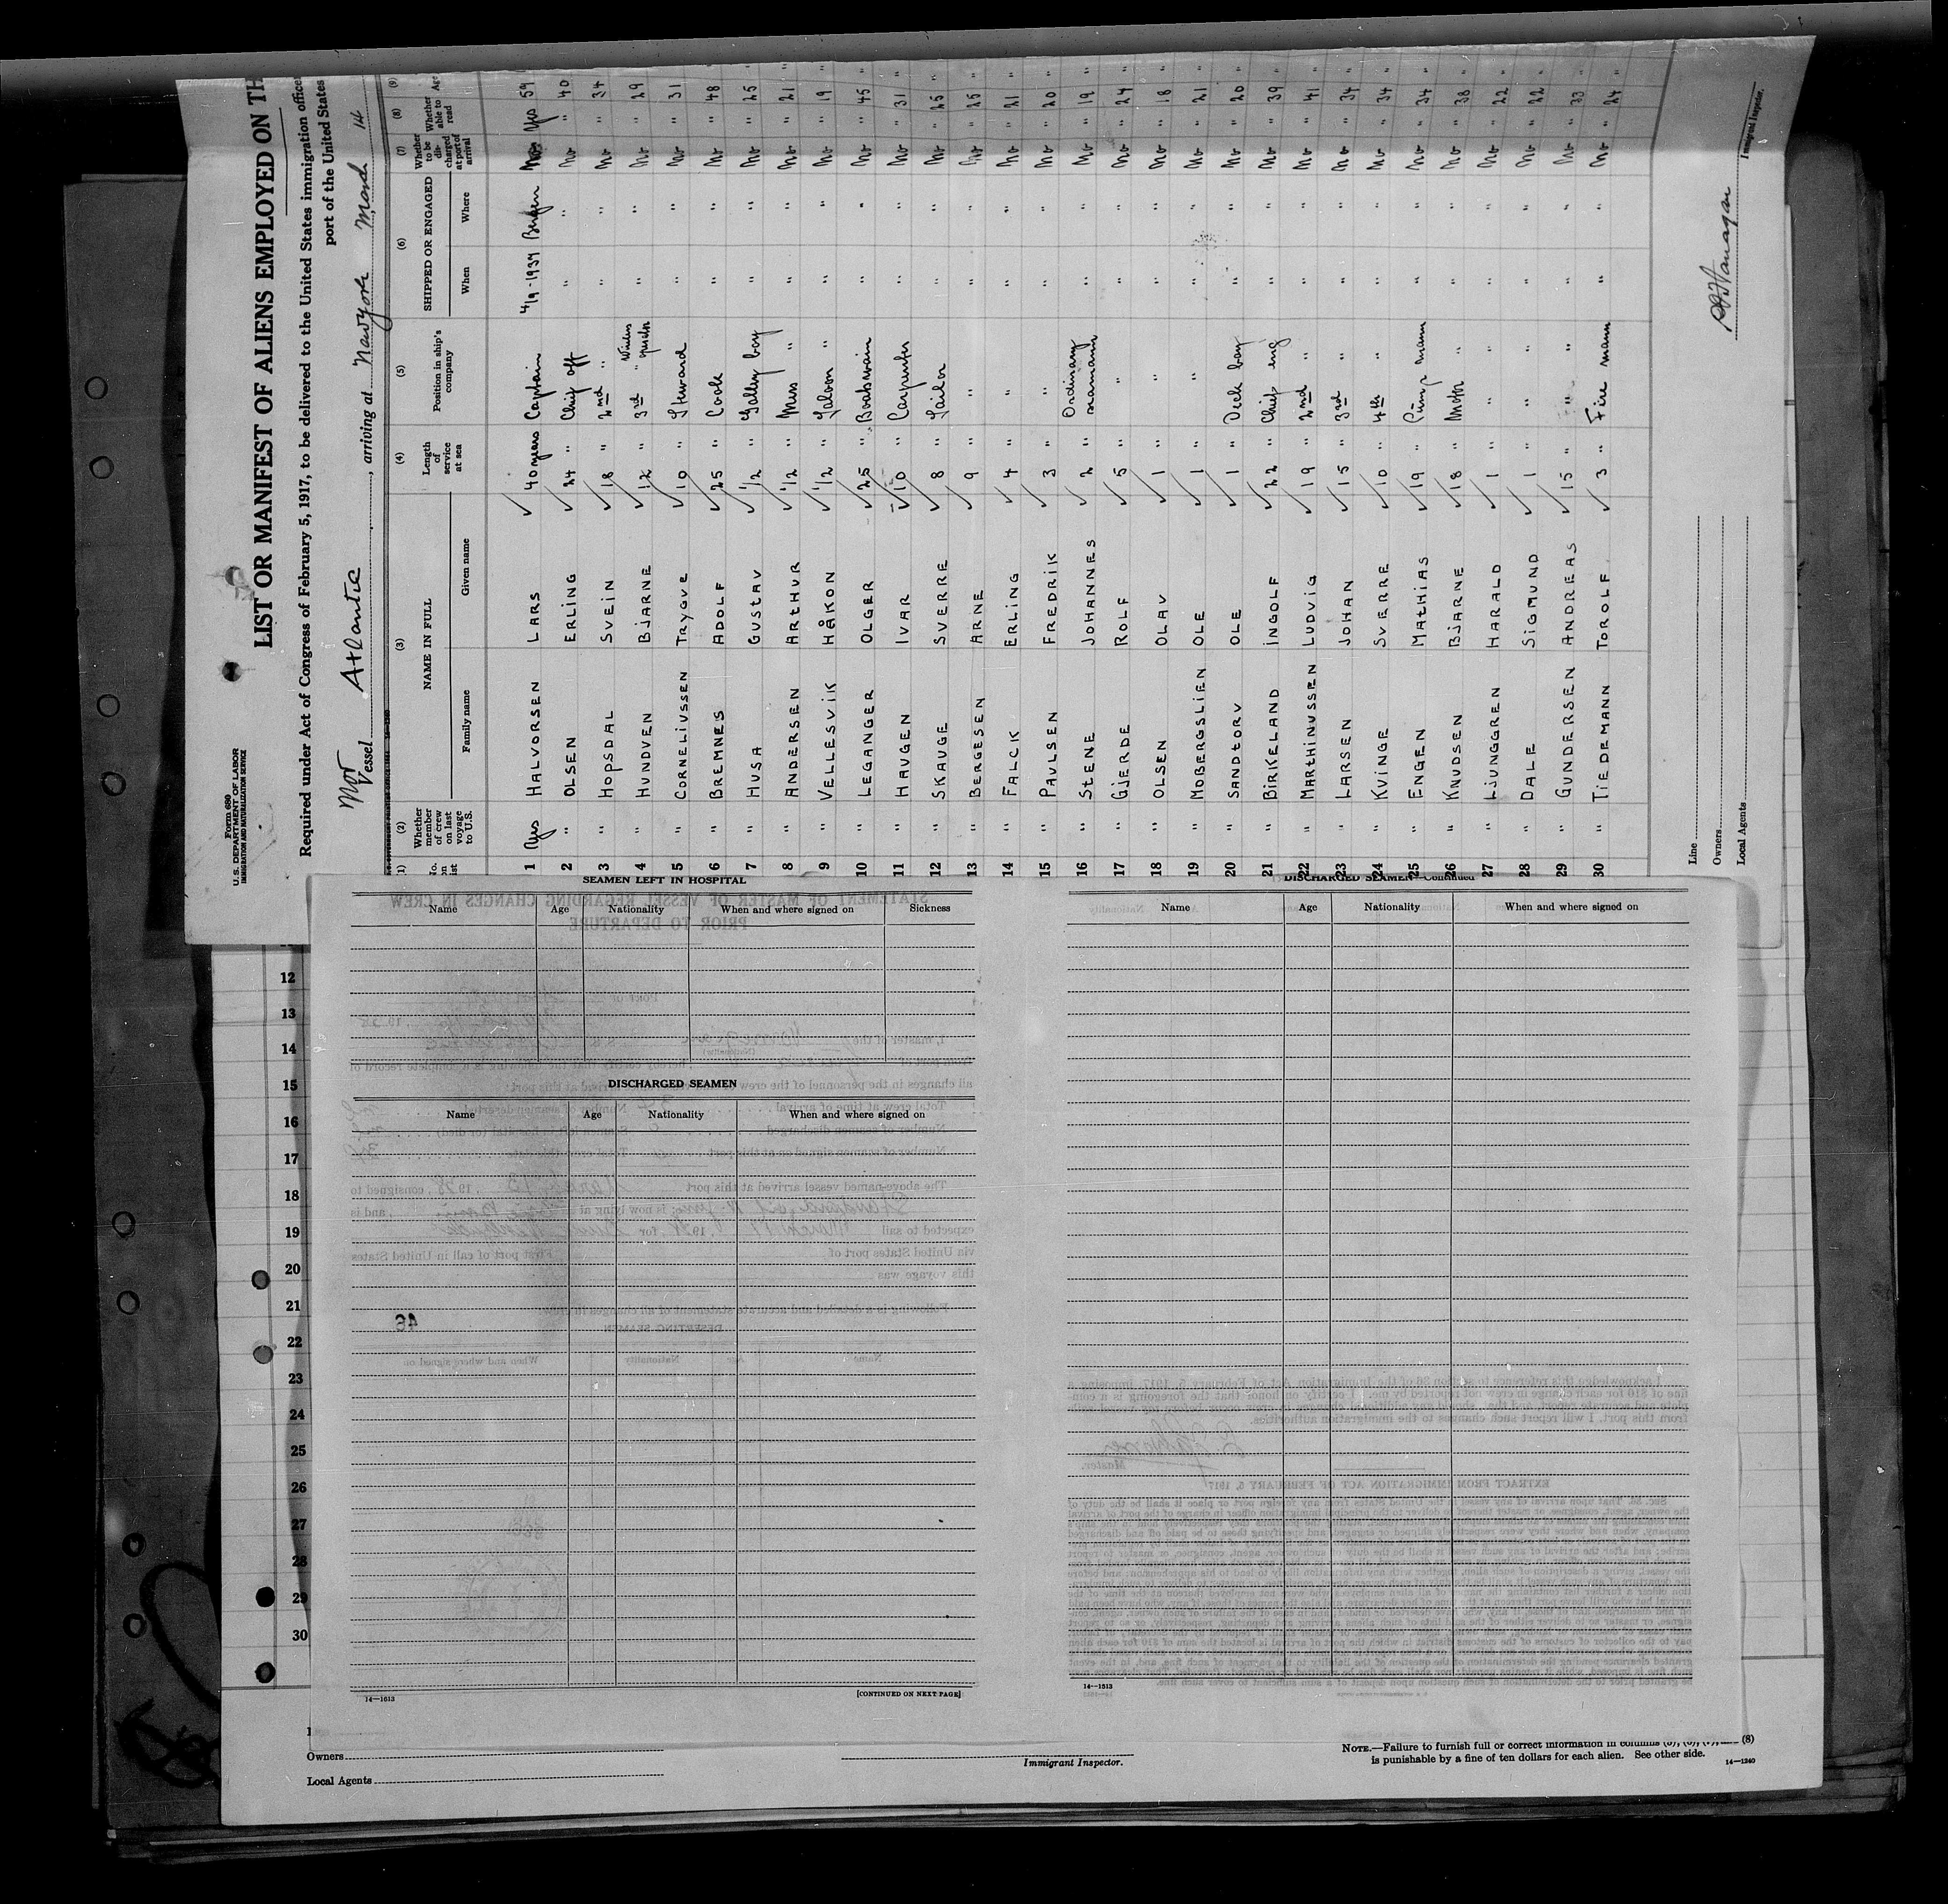 Form 680
U. S. DEPARTMENT OF LABOR
IMMIGRATION AND NATURALIZATION SERVICE
LIST OR MANIFEST OF ALIENS EMPLOYED ON TH
Required under Act of Congress of February 5, 1917, to be delivered to the United States immigration office
port of the United States
Vessel Atlantic, arriving at Newyork March 14
(1) (2) (3) (4) (5) (6) (7) (8) (9)
No. on list Whether member of crew on last voyage to U. S. NAME IN FULL Length of service at sea Position in ship's company SHIPPED OR ENGAGED Whether to be discharged at port of arrival Whether able to read Ag
Family name Given name When Where
1 Yes HALVORSEN LARS 40 years Captain 4/9-1937 Bergen No Yes 59
2 " OLSEN ERLING 24 " Chief off " " No " 40
3 " HOPSDAL SVEIN 18 " 2nd " " " No " 34
4 " HUNDVEN BJARNE 12 " 3rd " " " No " 29
5 " CORNELIUSSEN TRYGVE 10 " Steward " " No " 31
6 " BREMNES ADOLF 25 " Cook " " No " 48
7 " HUSA GUSTAV 1/2 " Galley boy " " No " 25
8 " ANDERSEN ARTHUR 1/2 " Mess " " " No " 21
9 " VELLESVIK HÅKON 1/2 " Saloon " " " No " 19
10 " LEGANGER OLGER 25 " Boatswain " " No " 45
11 " HAUGEN IVAR 10 " Carpenter " " No " 31
12 " SKAUGE SVERRE 8 " Sailor " " No " 25
13 " BERGESEN ARNE 9 " " " " No " 25
14 " FALCK ERLING 4 " " " " No " 21
15 " PAULSEN FREDRIK 3 " " " " No " 20
16 " STENE JOHANNES 2 " Ordinary seamann " " No " 19
17 " GJERDE ROLF 5 " " " " No " 24
18 " OLSEN OLAV 1 " " " " No " 18
19 " MOBERGSLIEN OLE 1 " " " " No " 21
20 " SANDTORV OLE 1 " Deck boy " " No " 20
21 " BIRKELAND INGOLF 22 " Chief eng " " No " 39
22 " MARTHINUSSEN LUDVIG 19 " 2nd " " " No " 41
23 " LARSEN JOHAN 15 " 3rd " " " No " 34
24 " KVINGE SVERRE 10 " 4th " " " No " 34
25 " ENGEN MATHIAS 19 " Pump mann " " No " 34
26 " KNUDSEN BJARNE 18 " Motor " " " No " 38
27 " LJUNGGREN HARALD 1 " " " " No " 22
28 " DALE SIGMUND 1 " " " " No " 22
29 " GUNDERSEN ANDREAS 15 " " " " No " 33
30 " TIEDEMANN TOROLF 3 " Fire mann " " No " 24
Line
Owners
Local Agents
Immigrant Inspector.
SEAMEN LEFT IN HOSPITAL
Name Age Nationality When and where signed on Sickness
DISCHARGED SEAMEN
Name Age Nationality When and where signed on
14—1613
[CONTINUED ON NEXT PAGE]
DISCHARGED SEAMEN—Continued
Name Age Nationality When and where signed on
14—1613
12
13
14
15
16
17
18
19
20
21
22
23
24
25
26
27
28
29
30
Owners
Local Agents
Immigrant Inspector.
NOTE.—Failure to furnish full or correct information in columns (8)
is punishable by a fine of ten dollars for each alien. See other side.
14—1240